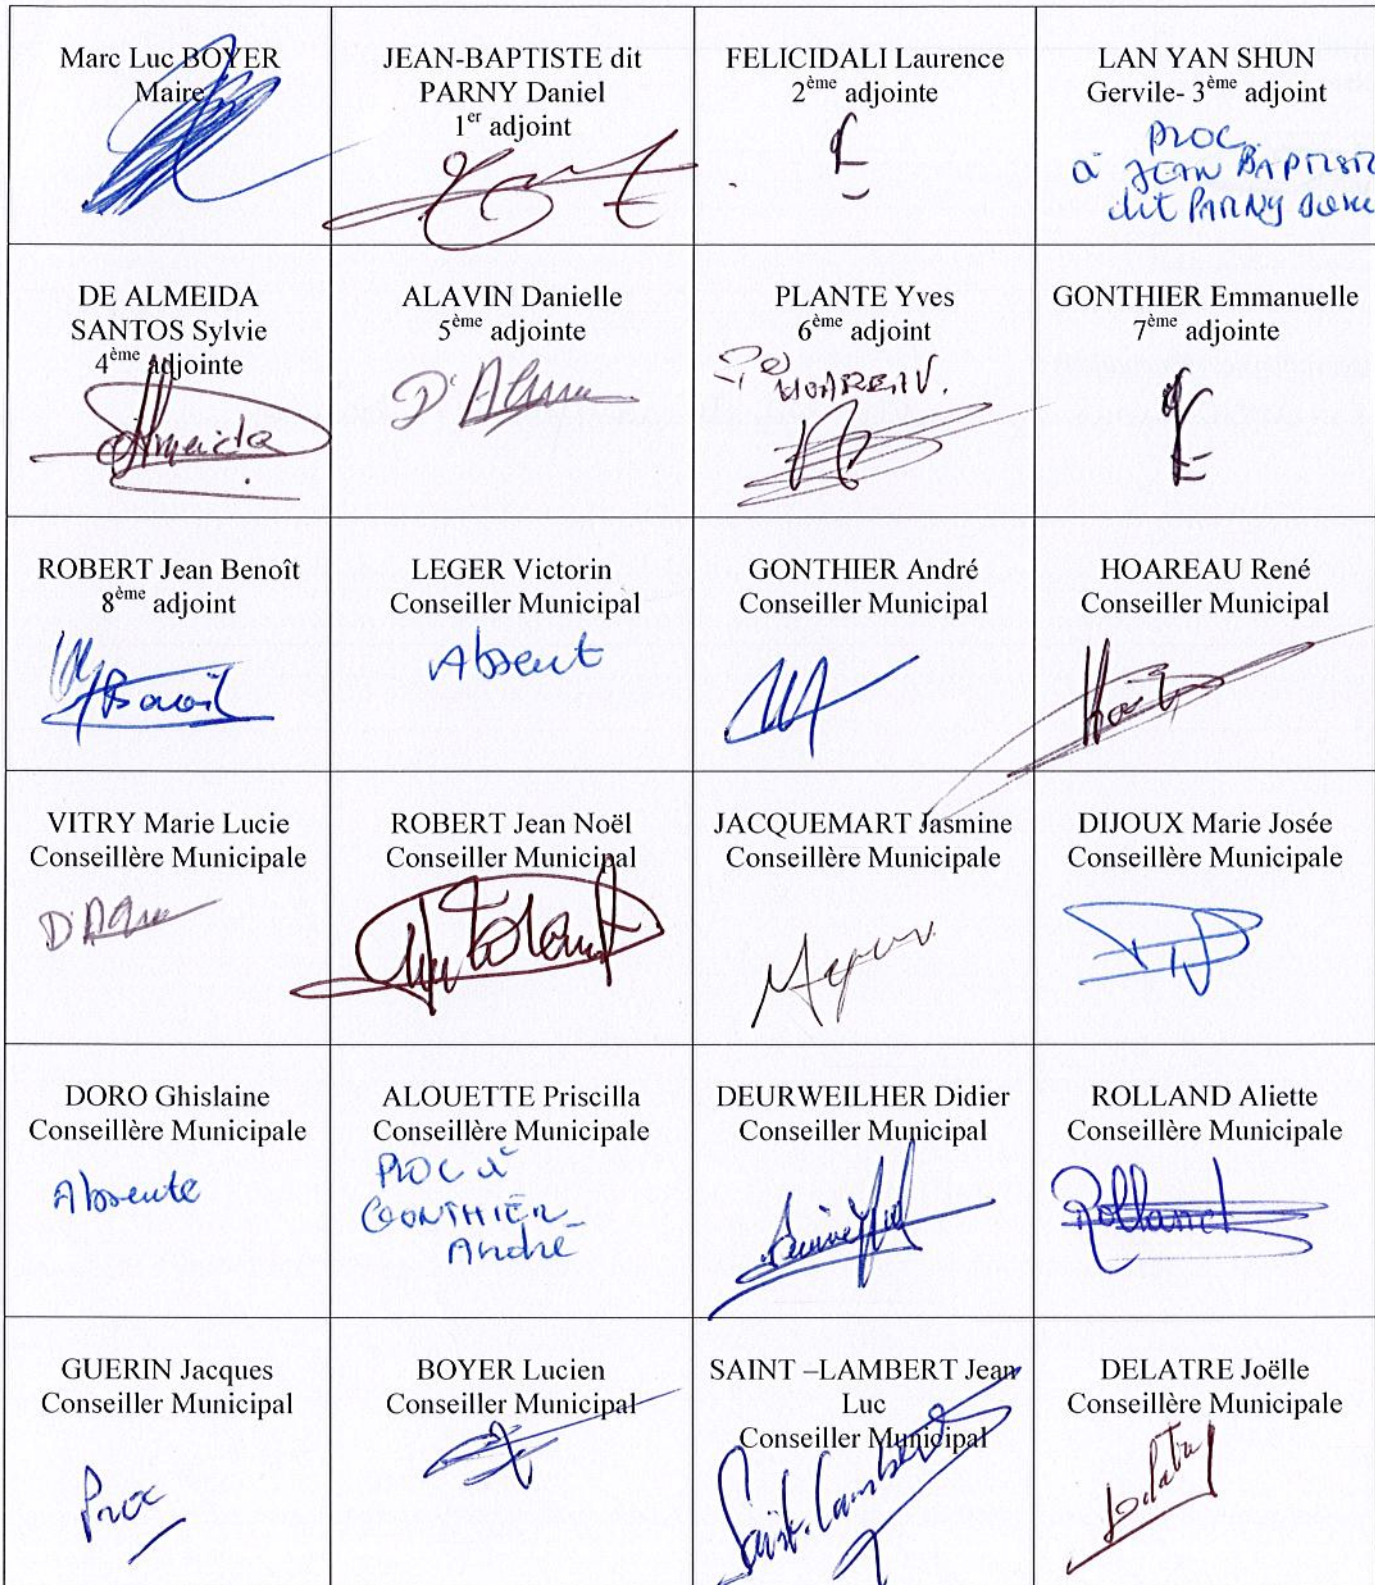 Marc Luc BOYER
Maire
JEAN-BAPTISTE dit
PARNY Daniel
1er adjoint
FELICIDALI Laurence
2ème adjointe
LAN YAN SHUN
Gervile- 3ème adjoint
Proc
à JEAN BAPTISTE
dit PARNY
DE ALMEIDA
SANTOS Sylvie
4ème adjointe
Almeida
ALAVIN Danielle
5ème adjointe
PLANTE Yves
6ème adjoint
HOAREAU.
GONTHIER Emmanuelle
7ème adjointe
ROBERT Jean Benoît
8ème adjoint
LEGER Victorin
Conseiller Municipal
Absent
GONTHIER André
Conseiller Municipal
HOAREAU René
Conseiller Municipal
VITRY Marie Lucie
Conseillère Municipale
ROBERT Jean Noël
Conseiller Municipal
JACQUEMART Jasmine
Conseillère Municipale
DIJOUX Marie Josée
Conseillère Municipale
DORO Ghislaine
Conseillère Municipale
Absente
ALOUETTE Priscilla
Conseillère Municipale
Proc à
GONTHIER
André
DEURWEILHER Didier
Conseiller Municipal
ROLLAND Aliette
Conseillère Municipale
Rolland
GUERIN Jacques
Conseiller Municipal
Proc
BOYER Lucien
Conseiller Municipal
SAINT –LAMBERT Jean
Luc
Conseiller Municipal
Saint-Lambert
DELATRE Joëlle
Conseillère Municipale
Delatre